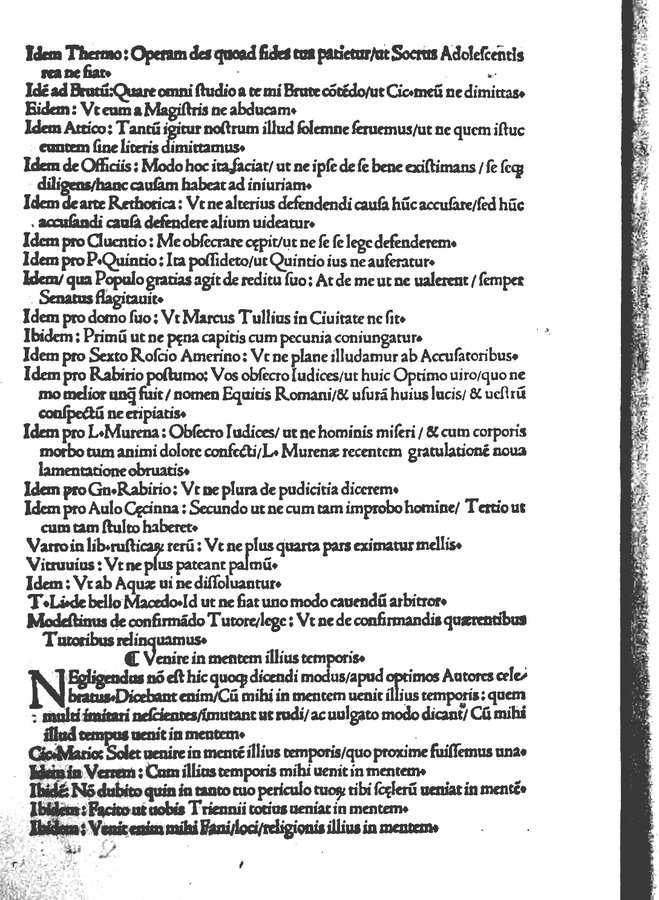 Idem Thermo: Operam des quoad fides tua patietur/ut Socrus Adoleſcentis
rea ne fiat.
Idē ad Brutū: Quare omni ſtudio a te mi Brute cōtēdo/ut Cic.meū ne dimittas.
Eidem: Vt eum a Magiſtris ne abducam.
Idem Attico: Tantū igitur noſtrum illud ſolemne ſeruemus/ut ne quem iſtuc
euntem ſine literis dimittamus.
Idem de Officiis: Modo hoc ita faciat/ ut ne ipſe de ſe bene exiſtimans / ſe ſeqꝫ
diligens/hanc cauſam habeat ad iniuriam.
Idem de arte Rethorica: Vt ne alterius defendendi cauſa hūc accuſare/ſed hūc
accuſandi cauſa defendere alium uideatur.
Idem pro Cluentio: Me obſecrare cępit/ut ne ſe ſe lege defenderem.
Idem pro P.Quintio: Ita poſſideto/ut Quintio ius ne auferatur.
Idem/ qua Populo gratias agit de reditu ſuo: At de me ut ne ualerent / ſemper
Senatus flagitauit.
Idem pro domo ſuo: Vt Marcus Tullius in Ciuitate ne ſit.
Ibidem: Primū ut ne pęna capitis cum pecunia coniungatur.
Idem pro Sexto Roſcio Amerino: Vt ne plane illudamur ab Accuſatoribus.
Idem pro Rabirio poſtumo: Vos obſecro Iudices/ut huic Optimo uiro/quo ne
mo melior unq̄ fuit / nomen Equitis Romani/& uſurā huius lucis/ & ueſtrū
conſpectū ne eripiatis.
Idem pro L.Murena: Obſecro Iudices/ ut ne hominis miſeri / & cum corporis
morbo tum animi dolore confecti/L. Murenæ recentem gratulationē noua
lamentatione obruatis.
Idem pro Gn.Rabirio: Vt ne plura de pudicitia dicerem.
Idem pro Aulo Cęcinna: Secundo ut ne cum tam improbo homine/ Tertio ut
cum tam ſtulto haberet.
Varro in lib.ruſticaꝝ rerū: Vt ne plus quarta pars eximatur mellis.
Vitruuius: Vt ne plus pateant palmū.
Idem: Vt ab Aquæ ui ne diſſoluantur.
T.Li.de bello Macedo.Id ut ne fiat uno modo cauendū arbitror.
Modeſtinus de confirmādo Tutore/lege: Vt ne de confirmandis quærentibus
Tutoribus relinquamus.
¶ Venire in mentem illius temporis.
NEgligendus nō eſt hic quoqꝫ dicendi modus/apud optimos Autores cele⸗
bratus.Dicebant enim/Cū mihi in mentem uenit illius temporis: quem
multi imitari neſcientes/īmutant ut rudi/ ac uulgato modo dicant/ Cū mihi
illud tempus uenit in mentem.
Cic.Mario: Solet uenire in mentē illius temporis/quo proxime fuiſſemus una.
Idem in Verrem: Cum illius temporis mihi uenit in mentem.
Ibidē: Nō dubito quin in tanto tuo periculo tuoꝝ tibi ſcęlerū ueniat in mentē.
Ibidem: Facito ut uobis Triennii totius ueniat in mentem.
Ibidem: Venit enim mihi Fani/loci/religionis illius in mentem.